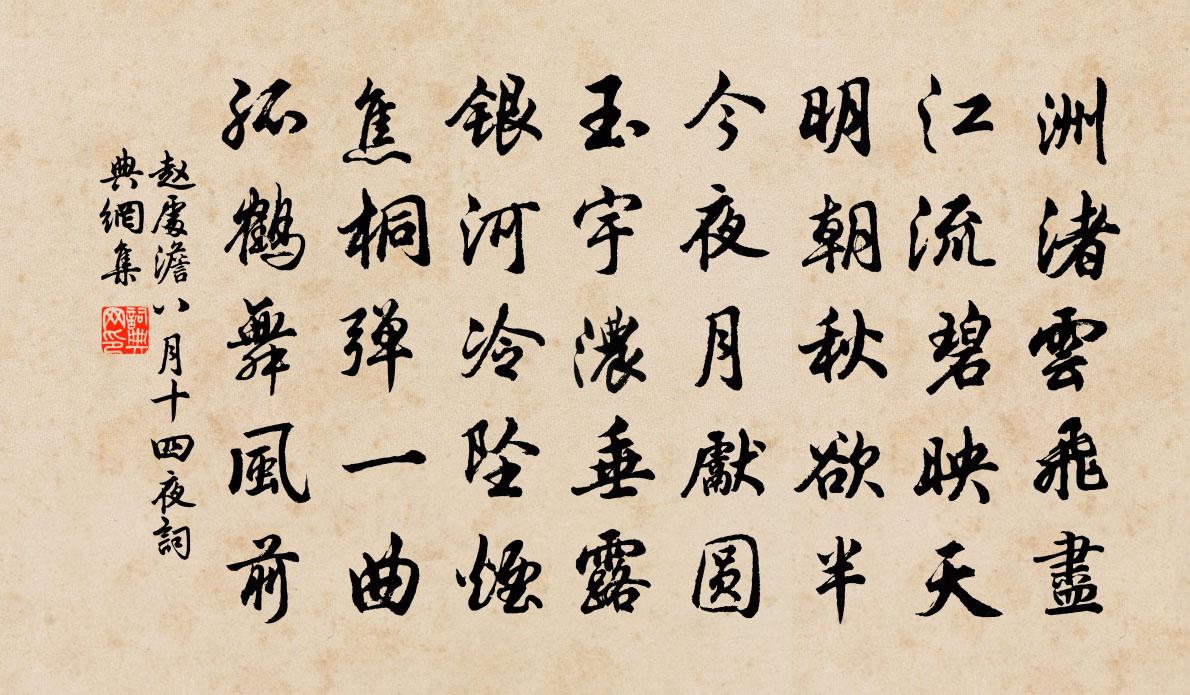 洲渚雲飛盡
江流碧映天
明朝秋欲半
今夜月獻圆
玉宇濃垂露
銀河冷坠煙
焦桐弹一曲
孤鶴舞風前
赵處澹八月十四夜詞
典網集
詞典网印